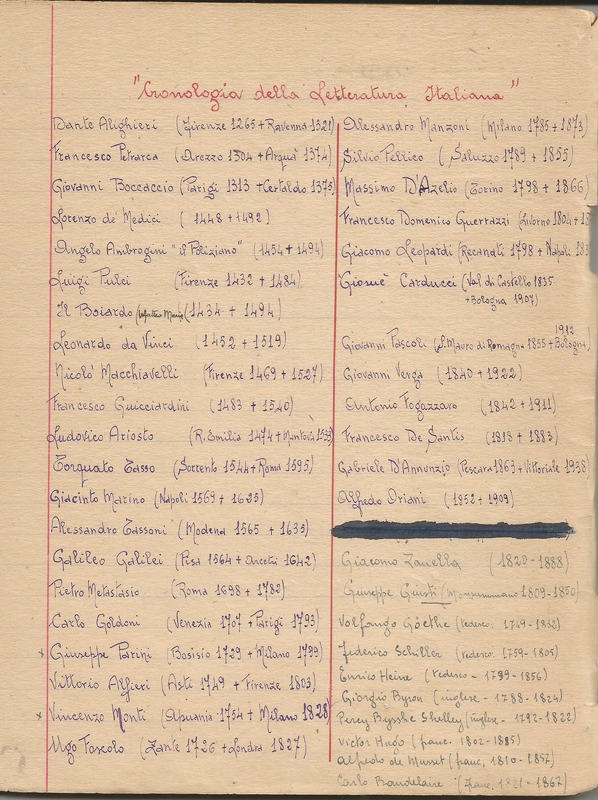 "Cronologia della Letteratura Italiana"
Dante Alighieri (Firenze 1265 + Ravenna 1321)
Francesco Petrarca (Arezzo 1304 + Arquà 1374)
Giovanni Boccaccio (Parigi 1313 + Certaldo 1375)
Lorenzo de' Medici (1448 + 1492)
Angelo Ambrogini "il Poliziano" (1454 + 1494)
Luigi Pulci (Firenze 1432 + 1484)
Il Boiardo (Matteo Maria) (1434 + 1494)
Leonardo da Vinci (1452 + 1519)
Nicolò Macchiavelli (Firenze 1469 + 1527)
Francesco Guicciardini (1483 + 1540)
Ludovico Ariosto (R. Emilia 1474 + Mantova 1533)
Torquato Tasso (Sorrento 1544 + Roma 1595)
Giacinto Marino (Napoli 1569 + 1625)
Alessandro Tassoni (Modena 1565 + 1635)
Galileo Galilei (Pisa 1564 + Arcetri 1642)
Pietro Metastasio (Roma 1698 + 1782)
Carlo Goldoni (Venezia 1707 + Parigi 1793)
x Giuseppe Parini (Bosisio 1729 + Milano 1799)
Vittorio Alfieri (Asti 1749 + Firenze 1803)
x Vincenzo Monti (Apuania 1754 + Milano 1828)
Ugo Foscolo (Zante 1726 + Londra 1827)
Alessandro Manzoni (Milano 1785 + 1873)
Silvio Pellico (Saluzzo 1789 + 1855)
Massimo D'Azelio (Torino 1798 + 1866)
Francesco Domenico Guerrazzi (Livorno 1804 +
Giacomo Leopardi (Recanati 1798 + Napoli
Giosuè Carducci (Val di Castello 1835
+ Bologna 1907)
Giovanni Pascoli (S. Mauro di Romagna 1855 + Bologna 1912)
Giovanni Verga (1840 + 1922)
Antonio Fogazzaro (1842 + 1911)
Francesco De Santis (1818 + 1883)
Gabriele D'Annunzio (Pescara 1863 + Vittoriale 1938)
Alfredo Oriani (1852 + 1909)
Giacomo Zanella (1820 - 1888)
Giuseppe Giusti (Monsummano 1809 - 1850)
Volfango Göethe (tedesco: 1749 - 1832)
Federico Schiller (tedesco: 1759 - 1805)
Enrico Heine (tedesco - 1799 - 1856)
Giorgio Byron (inglese - 1788 - 1824)
Percy Bysshe Shelley (ingles. - 1792 - 1822)
Victor Hugo (franc. 1802 - 1885)
Alfredo de Musset (franc. 1810 - 1857)
Carlo Baudelaire (franc. 1821 - 1867)